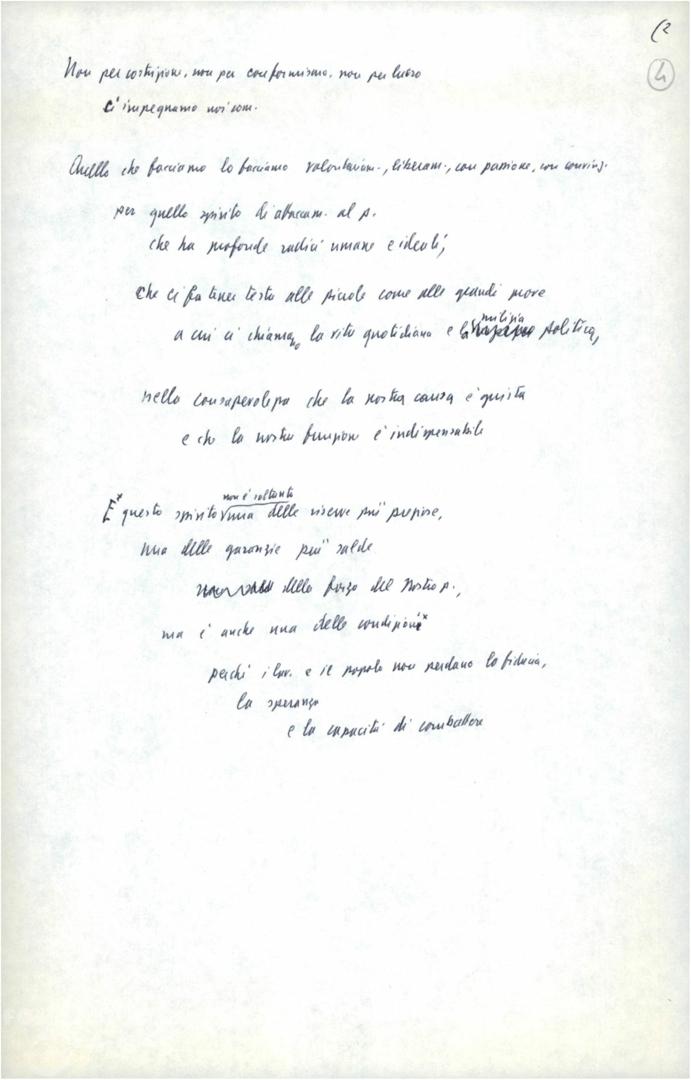 (2
4
Non per costrizione, non per conformismo, non per lucro
ci impegniamo noi com.
Quello che facciamo lo facciamo volontariam., liberam., con passione, con convinz.
per quello spirito di attaccam. al p.
che ha profonde radici umane e ideali,
che ci fa tener testa alle piccole come alle grandi prove
a cui ci chiamano la vita quotidiana e la milizia politica,
nella consapevolezza che la nostra causa è giusta
e che la nostra funzione è indispensabile
E questo spirito non è soltanto una delle riserve più preziose,
una delle garanzie più salde
della forza del nostro p.,
ma è anche una delle condizioni
perché i lav. e il popolo non perdano la fiducia,
la speranza
e la capacità di combattere